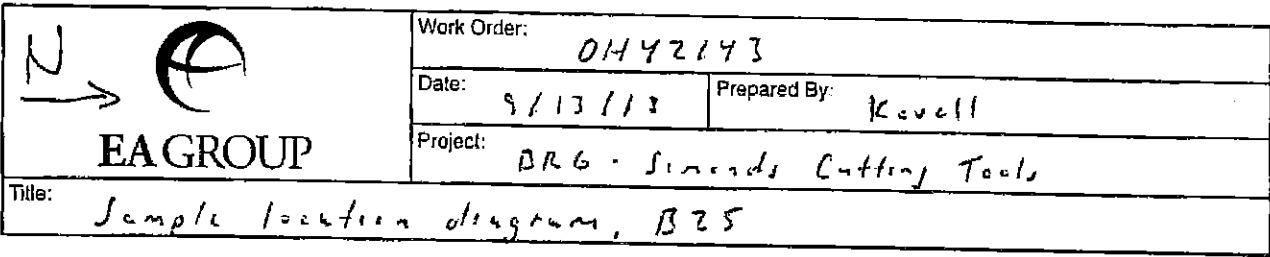 N
EA GROUP
Work Order: OH42143
Date: 9/13/13
Prepared By: Kovell
Project: BRG - Simonds Cutting Tools
Title: Sample location diagram, B25